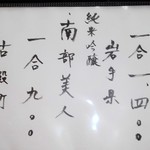 一合一、四〇〇
岩手県
純米吟醸
・南部美人
一合九〇〇
古殿町